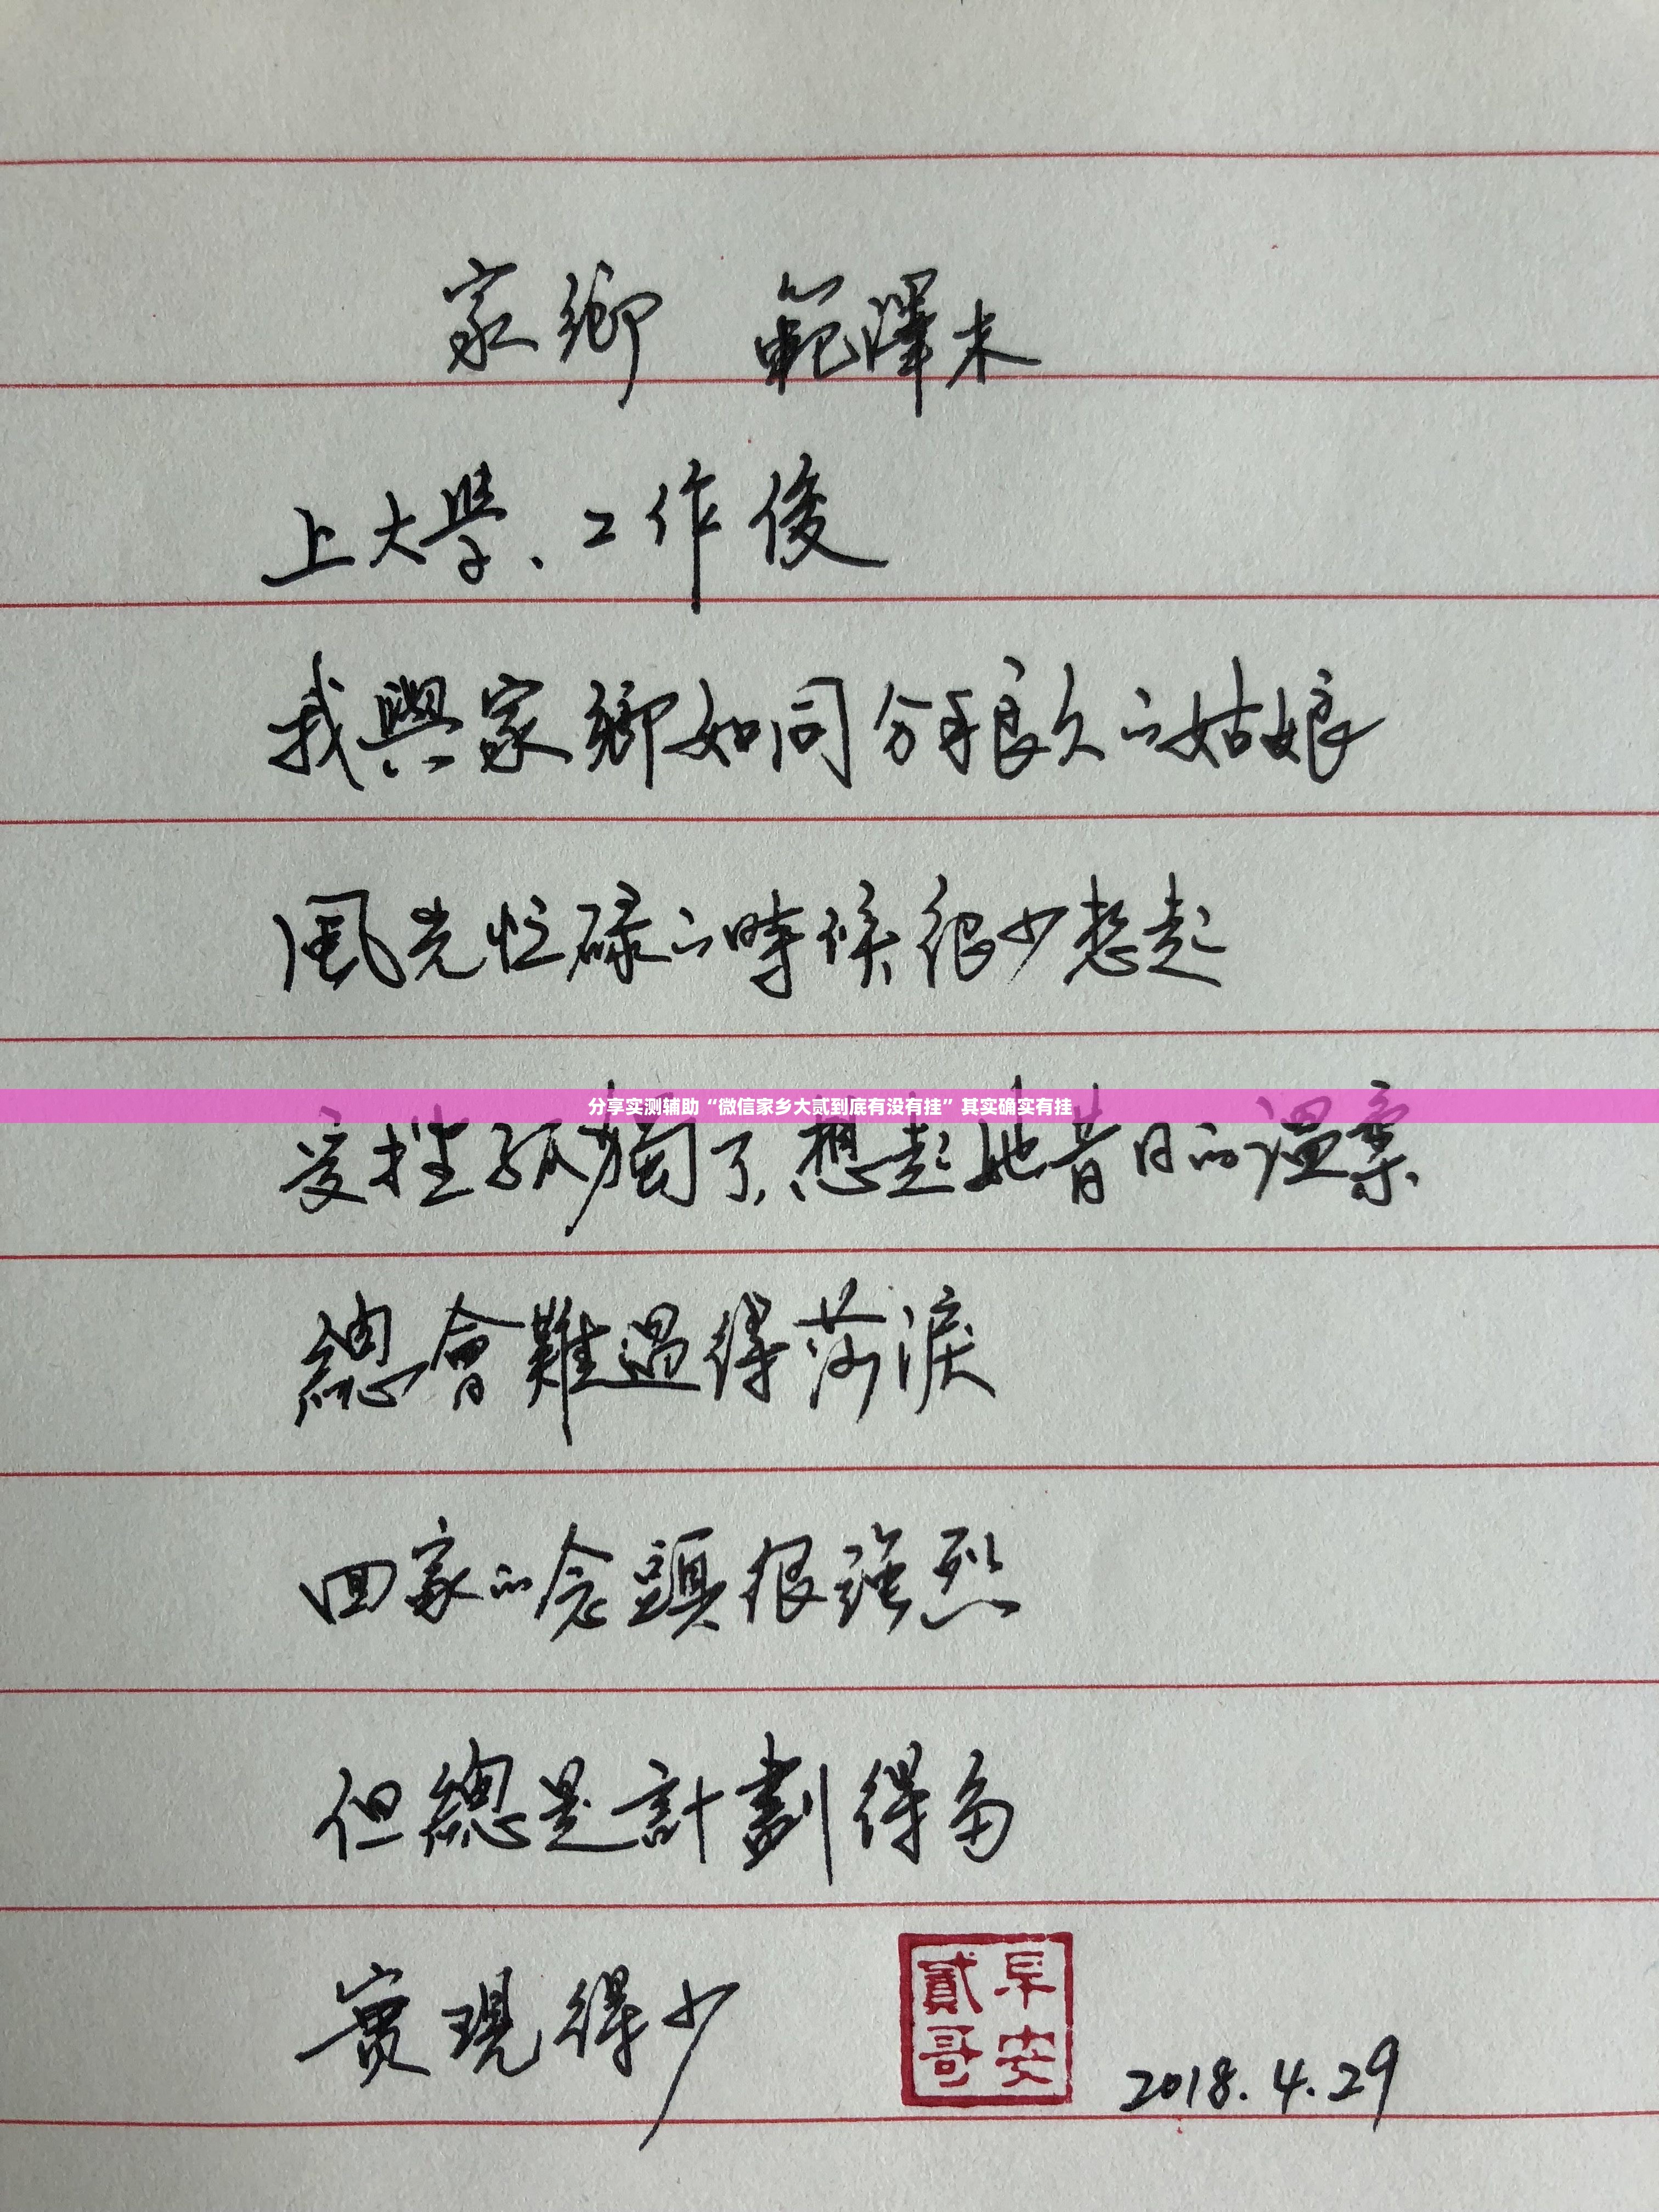 家鄉 範澤木
上大學、工作後
我與家鄉如同分手很久的姑娘
風光忙碌的時候很少想起
分享实测辅助“微信家乡大贰到底有没有挂”其实确实有挂
受挫孤獨了，想起她昔日的溫柔
總會難過得落淚
回家的念頭很強烈
但總是計劃得多
實現得少
早安
貳哥
2018.4.29